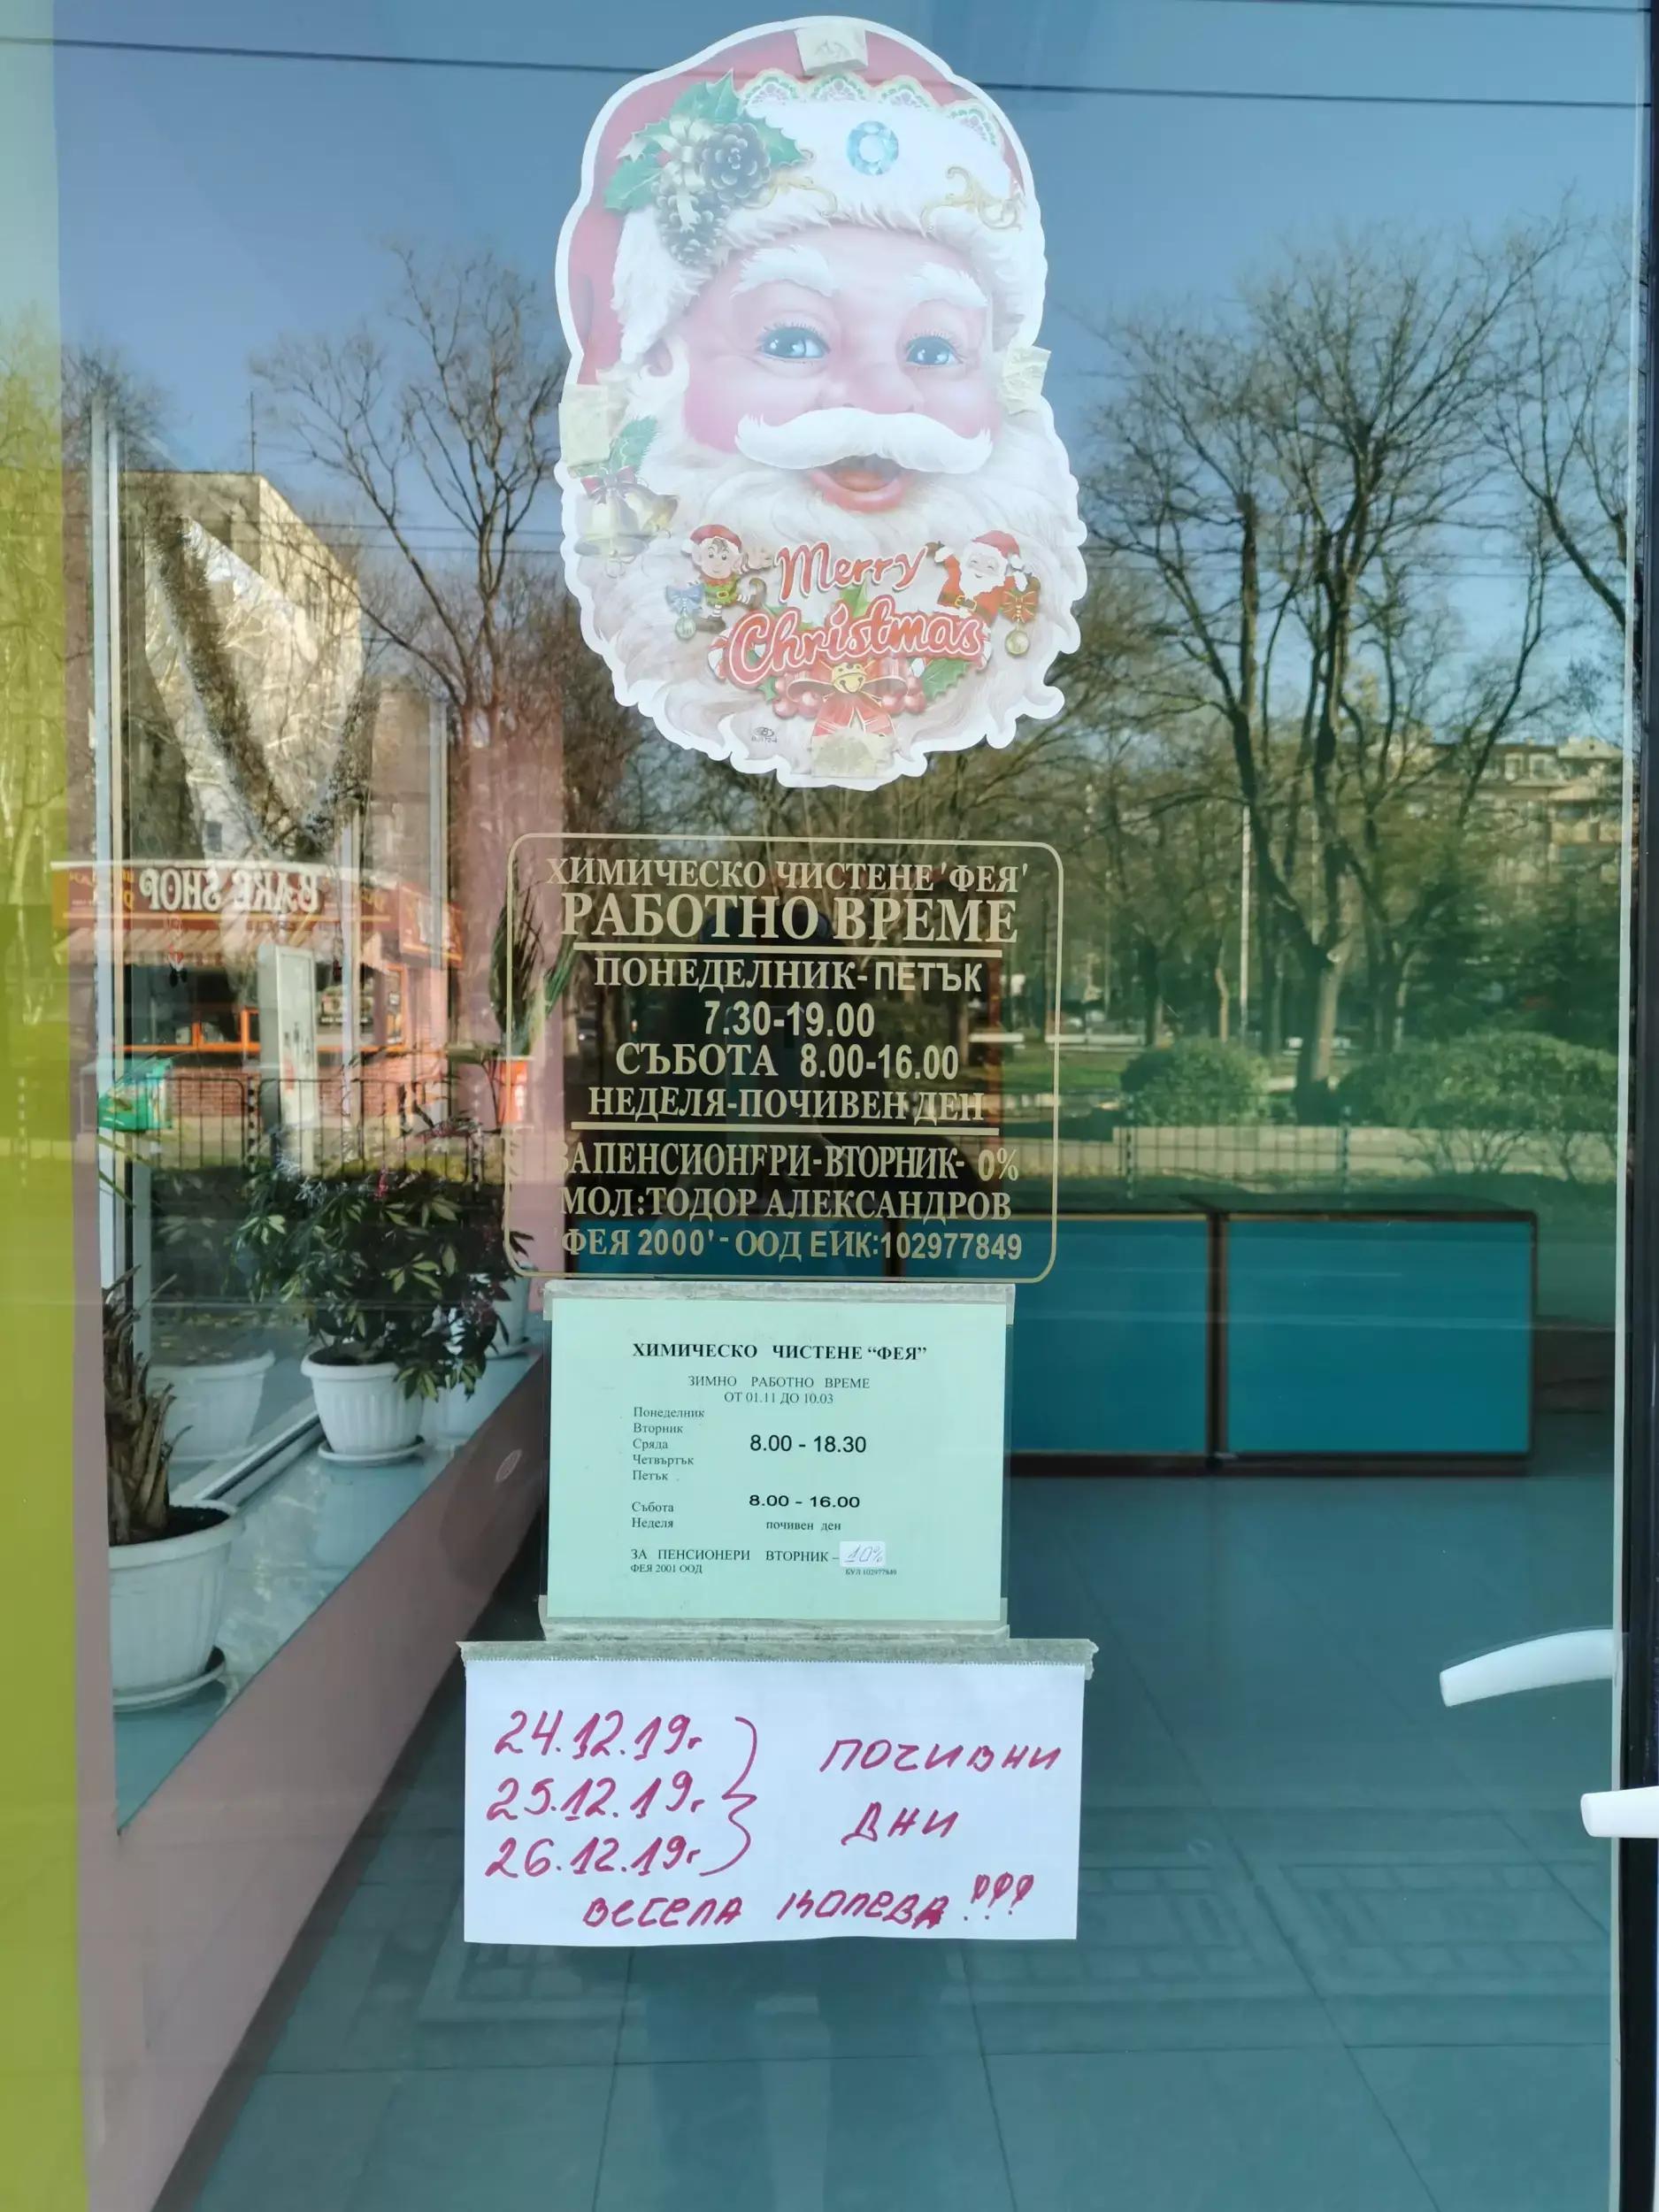 Merry
Christmas
BAKE SHOP
ХИМИЧЕСКО ЧИСТЕНЕ 'ФЕЯ'
РАБОТНО ВРЕМЕ
ПОНЕДЕЛНИК-ПЕТЪК
7.30-19.00
СЪБОТА 8.00-16.00
НЕДЕЛЯ-ПОЧИВЕН ДЕН
ЗА ПЕНСИОНЕРИ-ВТОРНИК- 0%
МОЛ:ТОДОР АЛЕКСАНДРОВ
'ФЕЯ 2000'-ООД ЕИК:102977849
ХИМИЧЕСКО ЧИСТЕНЕ “ФЕЯ”
ЗИМНО РАБОТНО ВРЕМЕ
ОТ 01.11 ДО 10.03
Понеделник
Вторник
Сряда 8.00 - 18.30
Четвъртък
Петък
Събота 8.00 - 16.00
Неделя почивен ден
ЗА ПЕНСИОНЕРИ ВТОРНИК – 10%
ФЕЯ 2001 ООД БУЛ 102977849
24.12.19г
25.12.19г
26.12.19г
ПОЧИВНИ
ДНИ
ВЕСЕЛА КОЛЕДА!!!